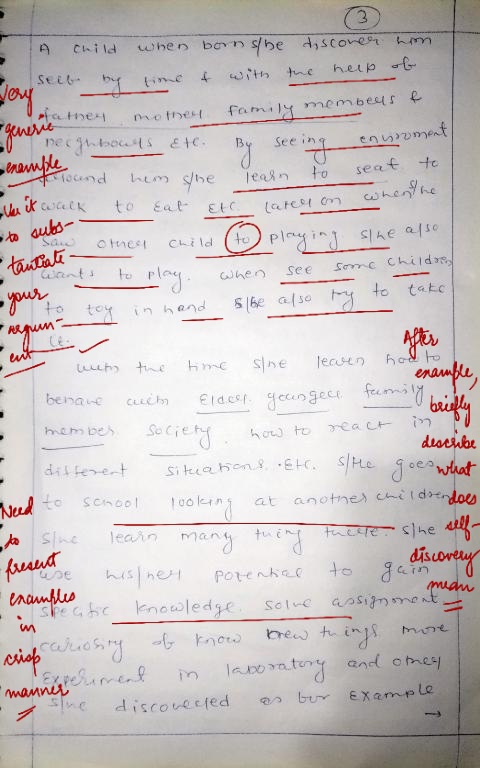 3
A child when born s/he discover him
self by time & with the help of
father, mother family members &
neighbours etc. By seeing enviroment
around him s/he learn to seat to
walk to eat etc. later on when s/he
saw other child to playing. s/he also
wants to play. when see some children
to toy in hand s/he also try to take
it.
with the time s/he learn how to
behave with Elder younger family
member society, how to react in
different situations. etc. s/he goes
to school looking at another children
s/he learn many thing there. s/he
use his/her potential to gain
specific knowledge. solve assignment
curiosity of know new things more
experiment in laboratory and other
s/he discovered as for example
Very
generic
example
Use it
to subs-
tantiate
your
argum-
ent
After
example,
briefly
describe
what
does
self-
discovery
mean
Need
to
present
examples
in
crisp
manner